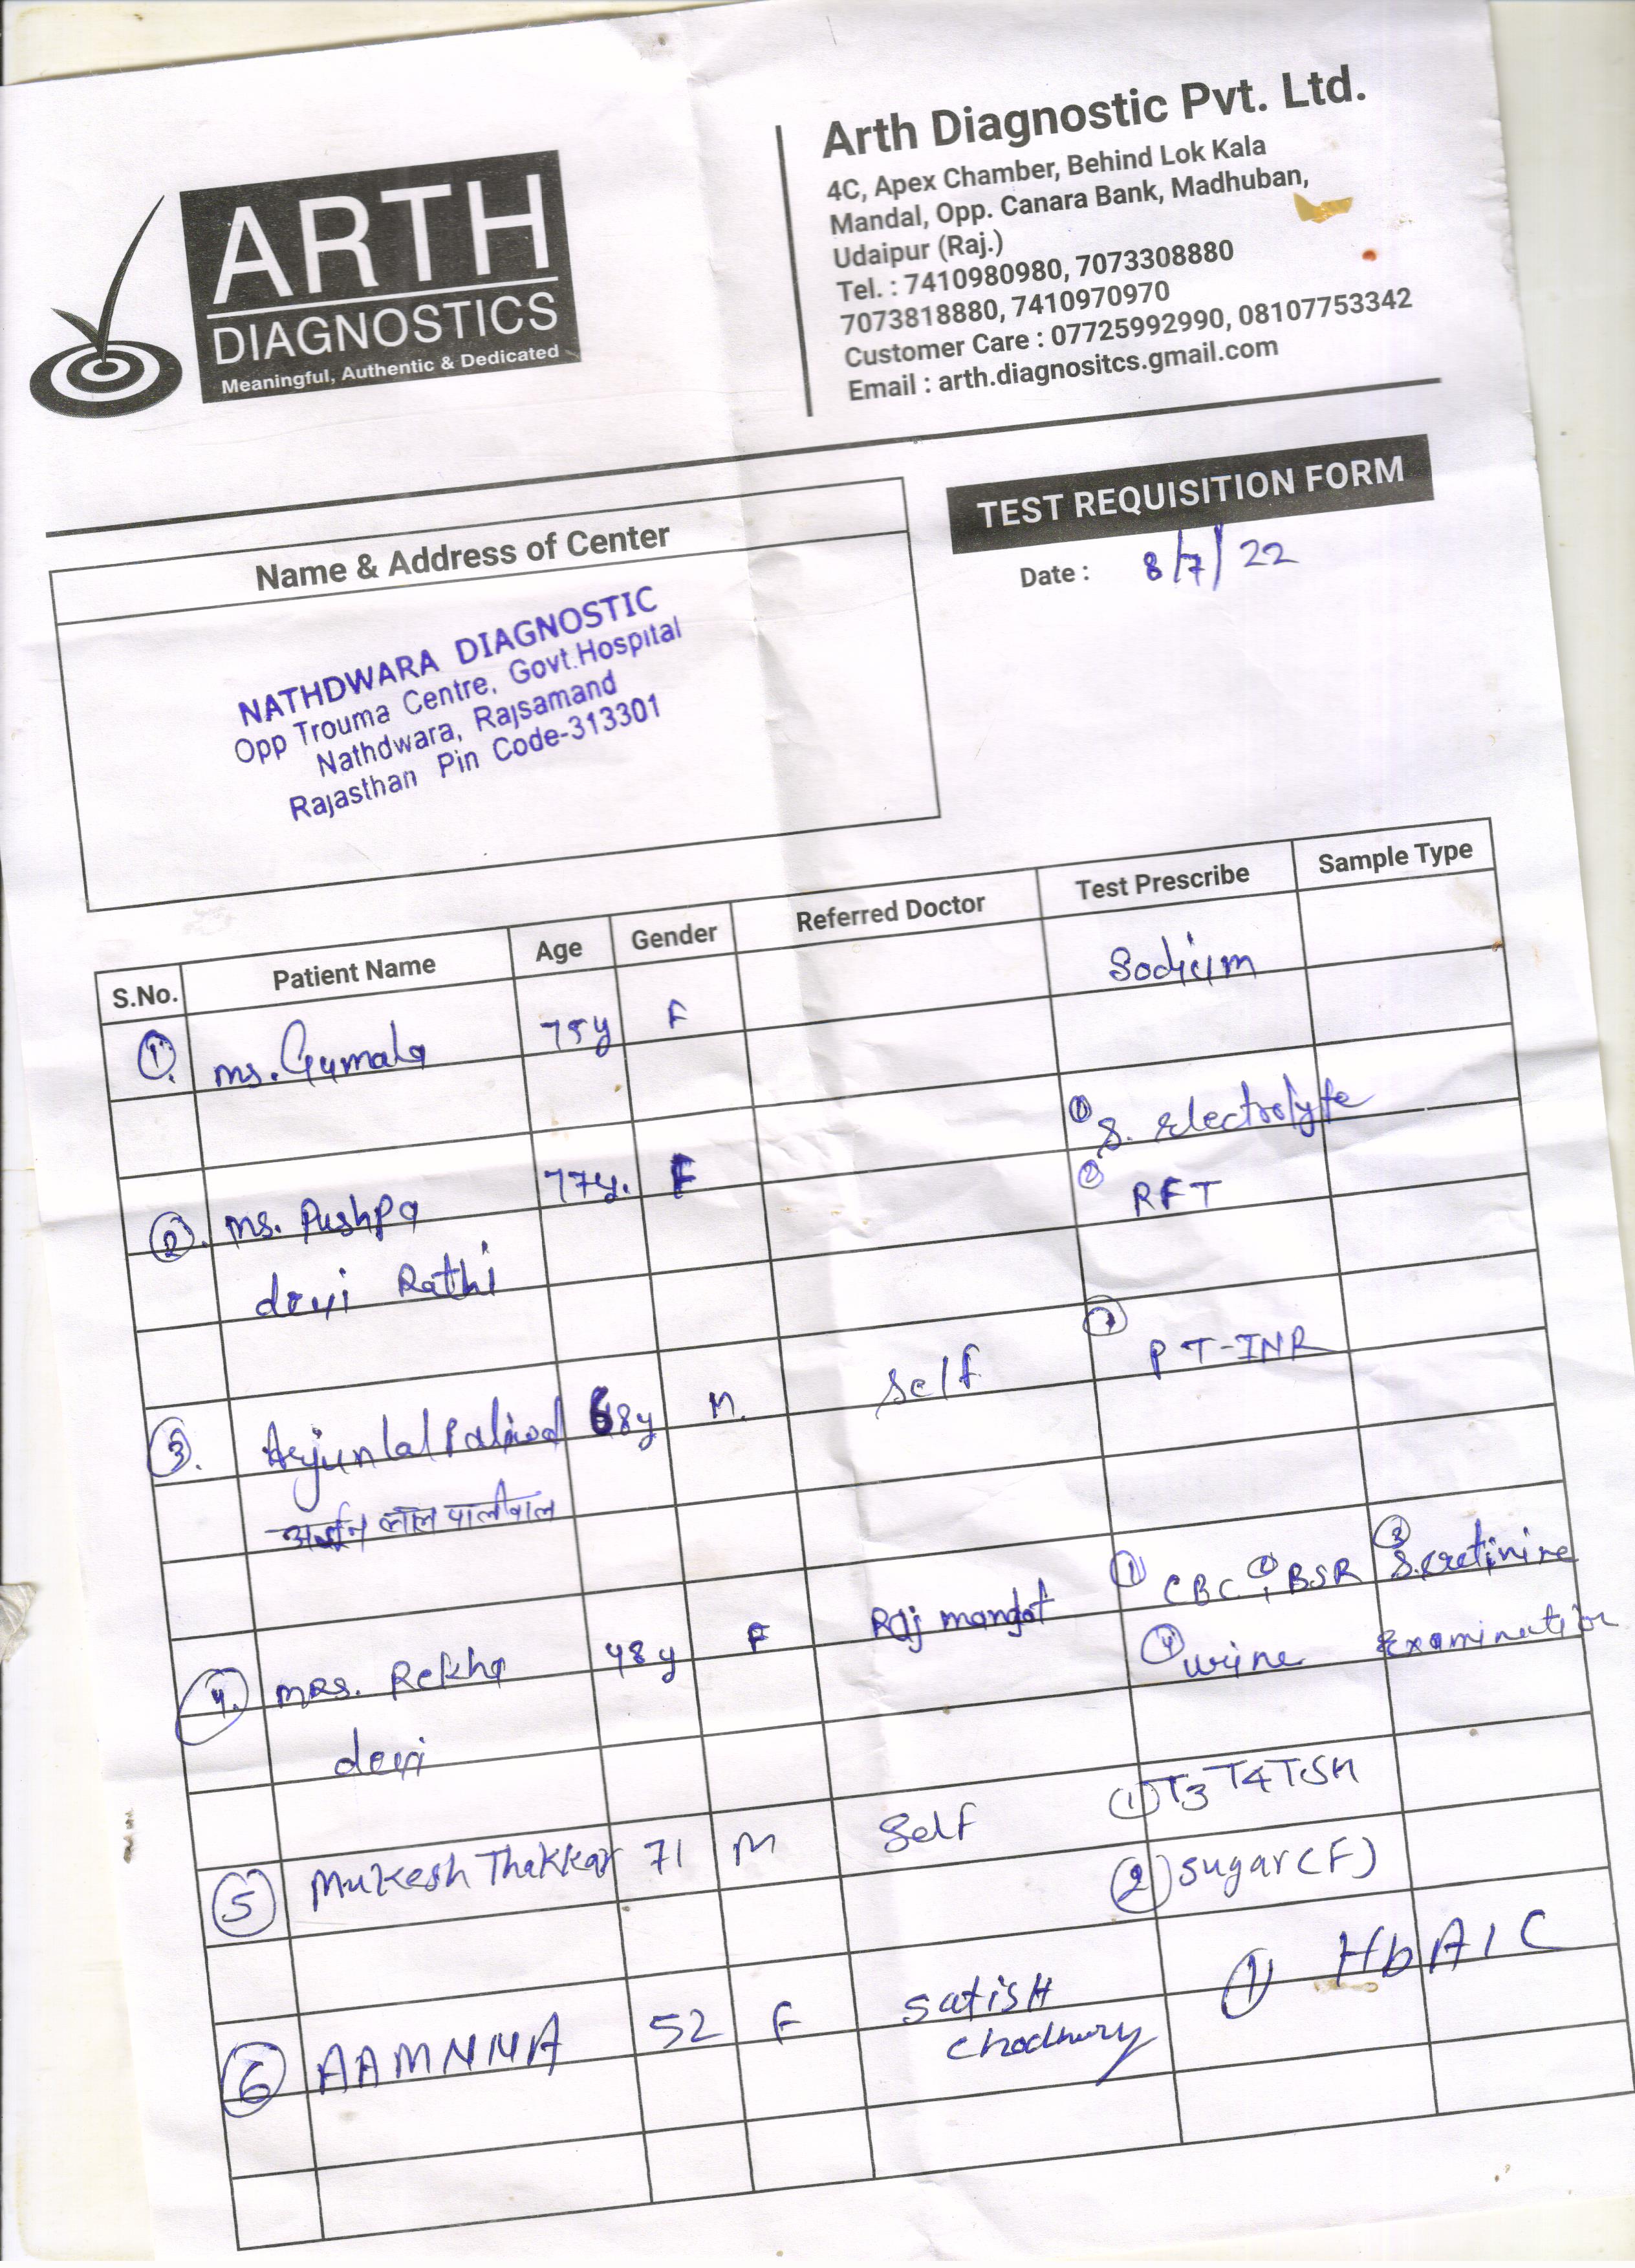 ARTH
DIAGNOSTICS
Meaningful, Authentic & Dedicated
Arth Diagnostic Pvt. Ltd.
4C, Apex Chamber, Behind Lok Kala
Mandal, Opp. Canara Bank, Madhuban,
Udaipur (Raj.)
Tel. : 7410980980, 7073308880
7073818880, 7410970970
Customer Care : 07725992990, 08107753342
Email : arth.diagnositcs.gmail.com
TEST REQUISITION FORM
Date : 8/7/22
Name & Address of Center
NATHDWARA DIAGNOSTIC
Opp Trouma Centre, Govt.Hospital
Nathdwara, Rajsamand
Rajasthan Pin Code-313301
S.No. Patient Name Age Gender Referred Doctor Test Prescribe Sample Type
1. ms. Gumala 75y F Sodium
2. ms. Pushpa 77y. F ① S. Electrolyte
devi Rathi ② RFT
3. Arjunlal Paliwal 68y M. Self ① PT-INR
अर्जुन लाल पालीवाल
4. mrs. Rekha 48y F Raj ① CBC, ② BSR ③ S.cretinine
devi ④ urine Examination
5 Mukesh Thakkar 71 M Self (1) T3 T4 TSH
(2) Sugar (F)
6 AAMNNA 52 F SatisH ① HbA1C
Chodhury